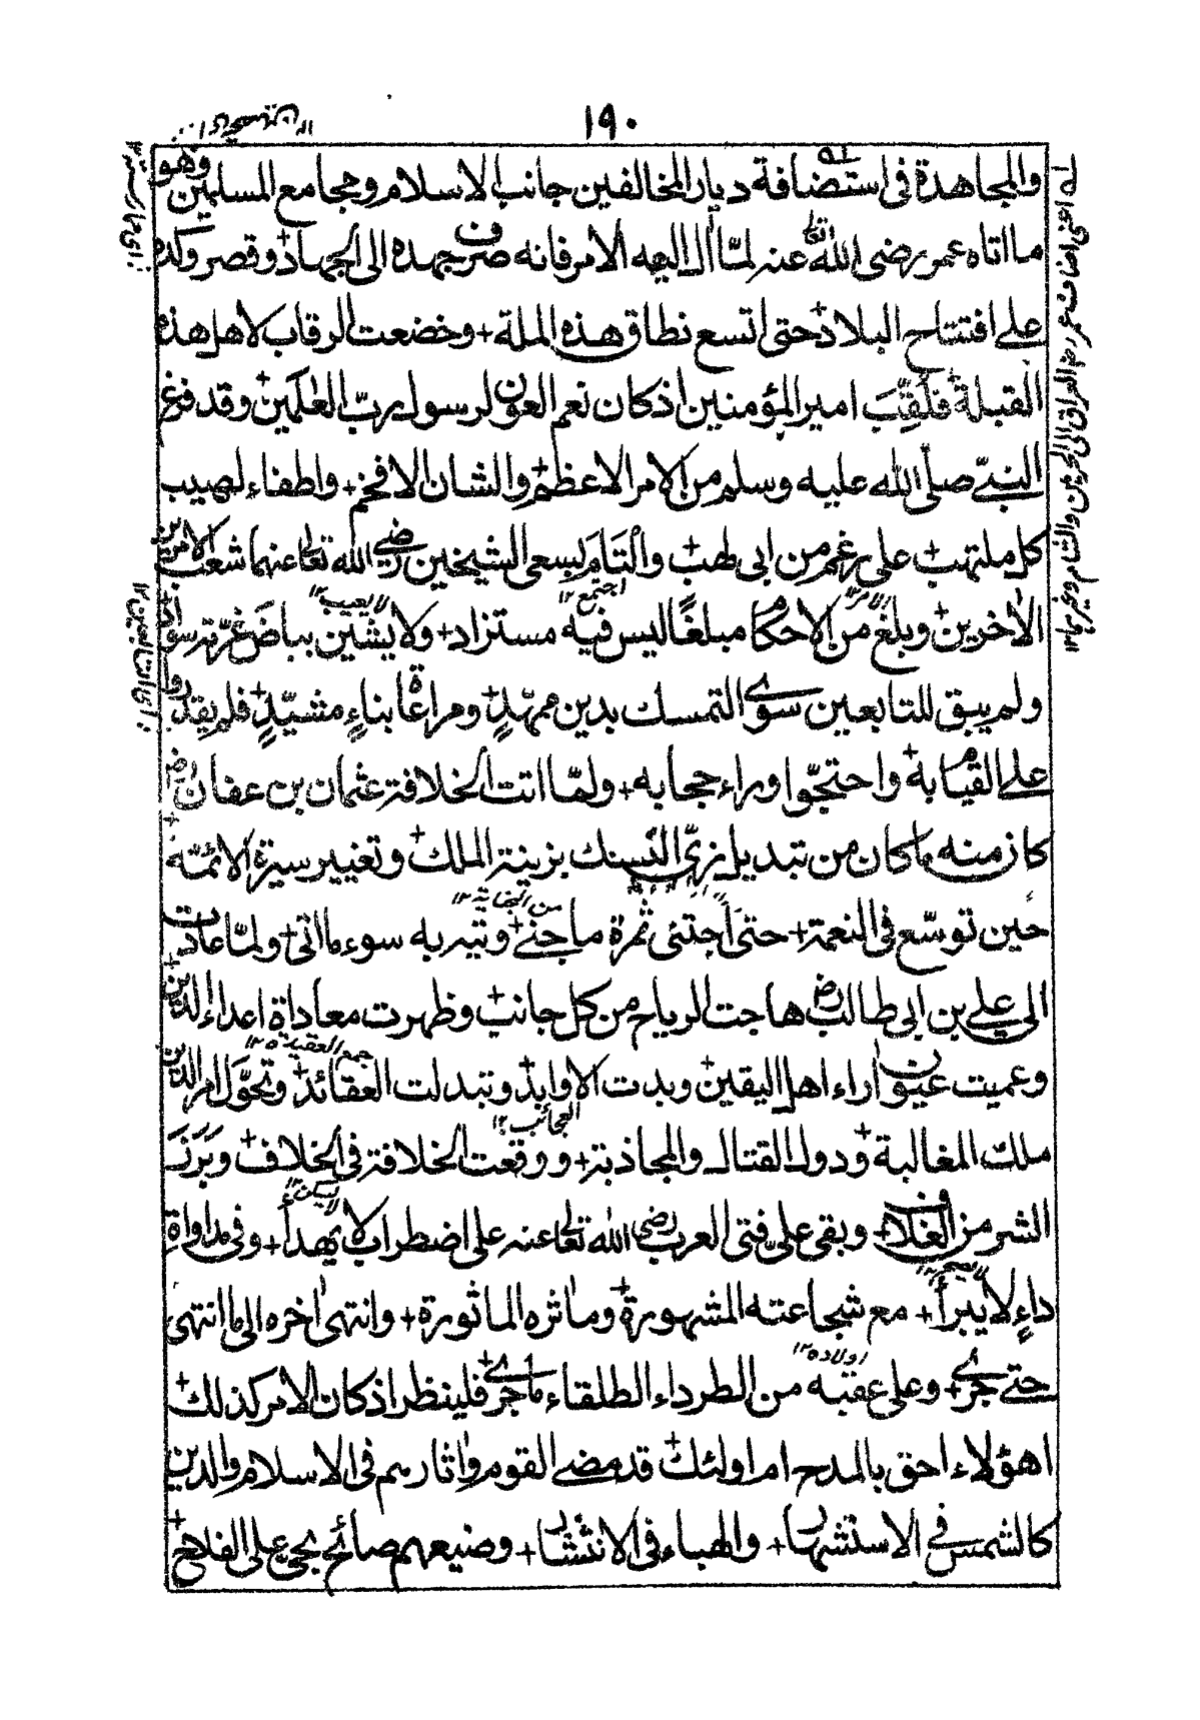 ١٩٠
والمجاهدة في استضافة ديار المخالفين جانب الاسلام ومجامع المسلمين وهو
ما اتاه عمر رضى الله تعالى عنه لمّا اٰل اليه الامر فانه صرف جهده الى الجهاد + وقصر وكده
على افتتاح البلاد + حتى اتسع نطاق هذه الملة + وخضعت الرقاب لاهل هذه
القبلة + فلُقِّبَ امير المؤمنين اذ كان نعم العون لرسول ربّ العٰلمين + وقد فرغ
النبيّ صلّى الله عليه وسلم من الامر الاعظم + والشان الافخم + واطفاء لهيب
كل ملتهب + على رغم من ابى لهب + والتَأم لسعى الشيخين رضى الله تعالى عنهما شعب الامر بين
الاٰخرين + وبلغ من الاحكام مبلغًا ليس فيه مستزاد + ولا يشين بياضَ غرّته سواد +
ولم يبق للتابعين سوى التمسك بدين ممهّدٍ + ومراعاة بناءٍ مشيّدٍ + فلم يقدروا
على القيام به + واحتجّوا وراء حجابه + ولمّا اتت الخلافة عثمان بن عفان رض
كان منه ما كان من تبديل زيّ النسك بزينة الملك + وتغيير سيرة الائمّة +
حين توسّع في النعمة + حتى اجتنى ثمرة ما جنى + وتيربه سوء ما اتى + ولمّا عادت
الى علي بن ابى طالب رض هاجت الرياح من كل جانب + وظهرت معاداة اعداء الدين +
وعميت عيون اٰراء اهل اليقين + وبدت الاوابد + وتبدلت العقائد + وتحوّل امر الدين
ملك المغالبة + ودول القتال والمجاذبة + ووقعت الخلافة في الخلاف + وبَرَزَ
الشر من الغلاف + وبقى على فتى العرب رضى الله تعالى عنه على اضطراب لا يهدأ + وفي مداواة
داءٍ لا يبرأ + مع شجاعته المشهورة + ومآثره الماثورة + وانتهى اٰخره الى ما انتهى
حتى جرى + وعلى عقبه من الطرداء الطلقاء ما جرى + فلينظر اذ كان الامر كذلك +
اهؤلاء احق بالمدح ام اولئك + قد مضى القوم واٰثارهم في الاسلام والدين
كالشمس في الاستشهار + والهباء في الانتشار + وضيعهم صائح بحي على الفلاح +
لا يعيب ١٢
اجتمع ١٢
من الجناية ١٢
جمع العقيدة ١٢
العجائب ١٢
لا يسكن ١٢
اولاده ١٢
اى التابعين ١٢